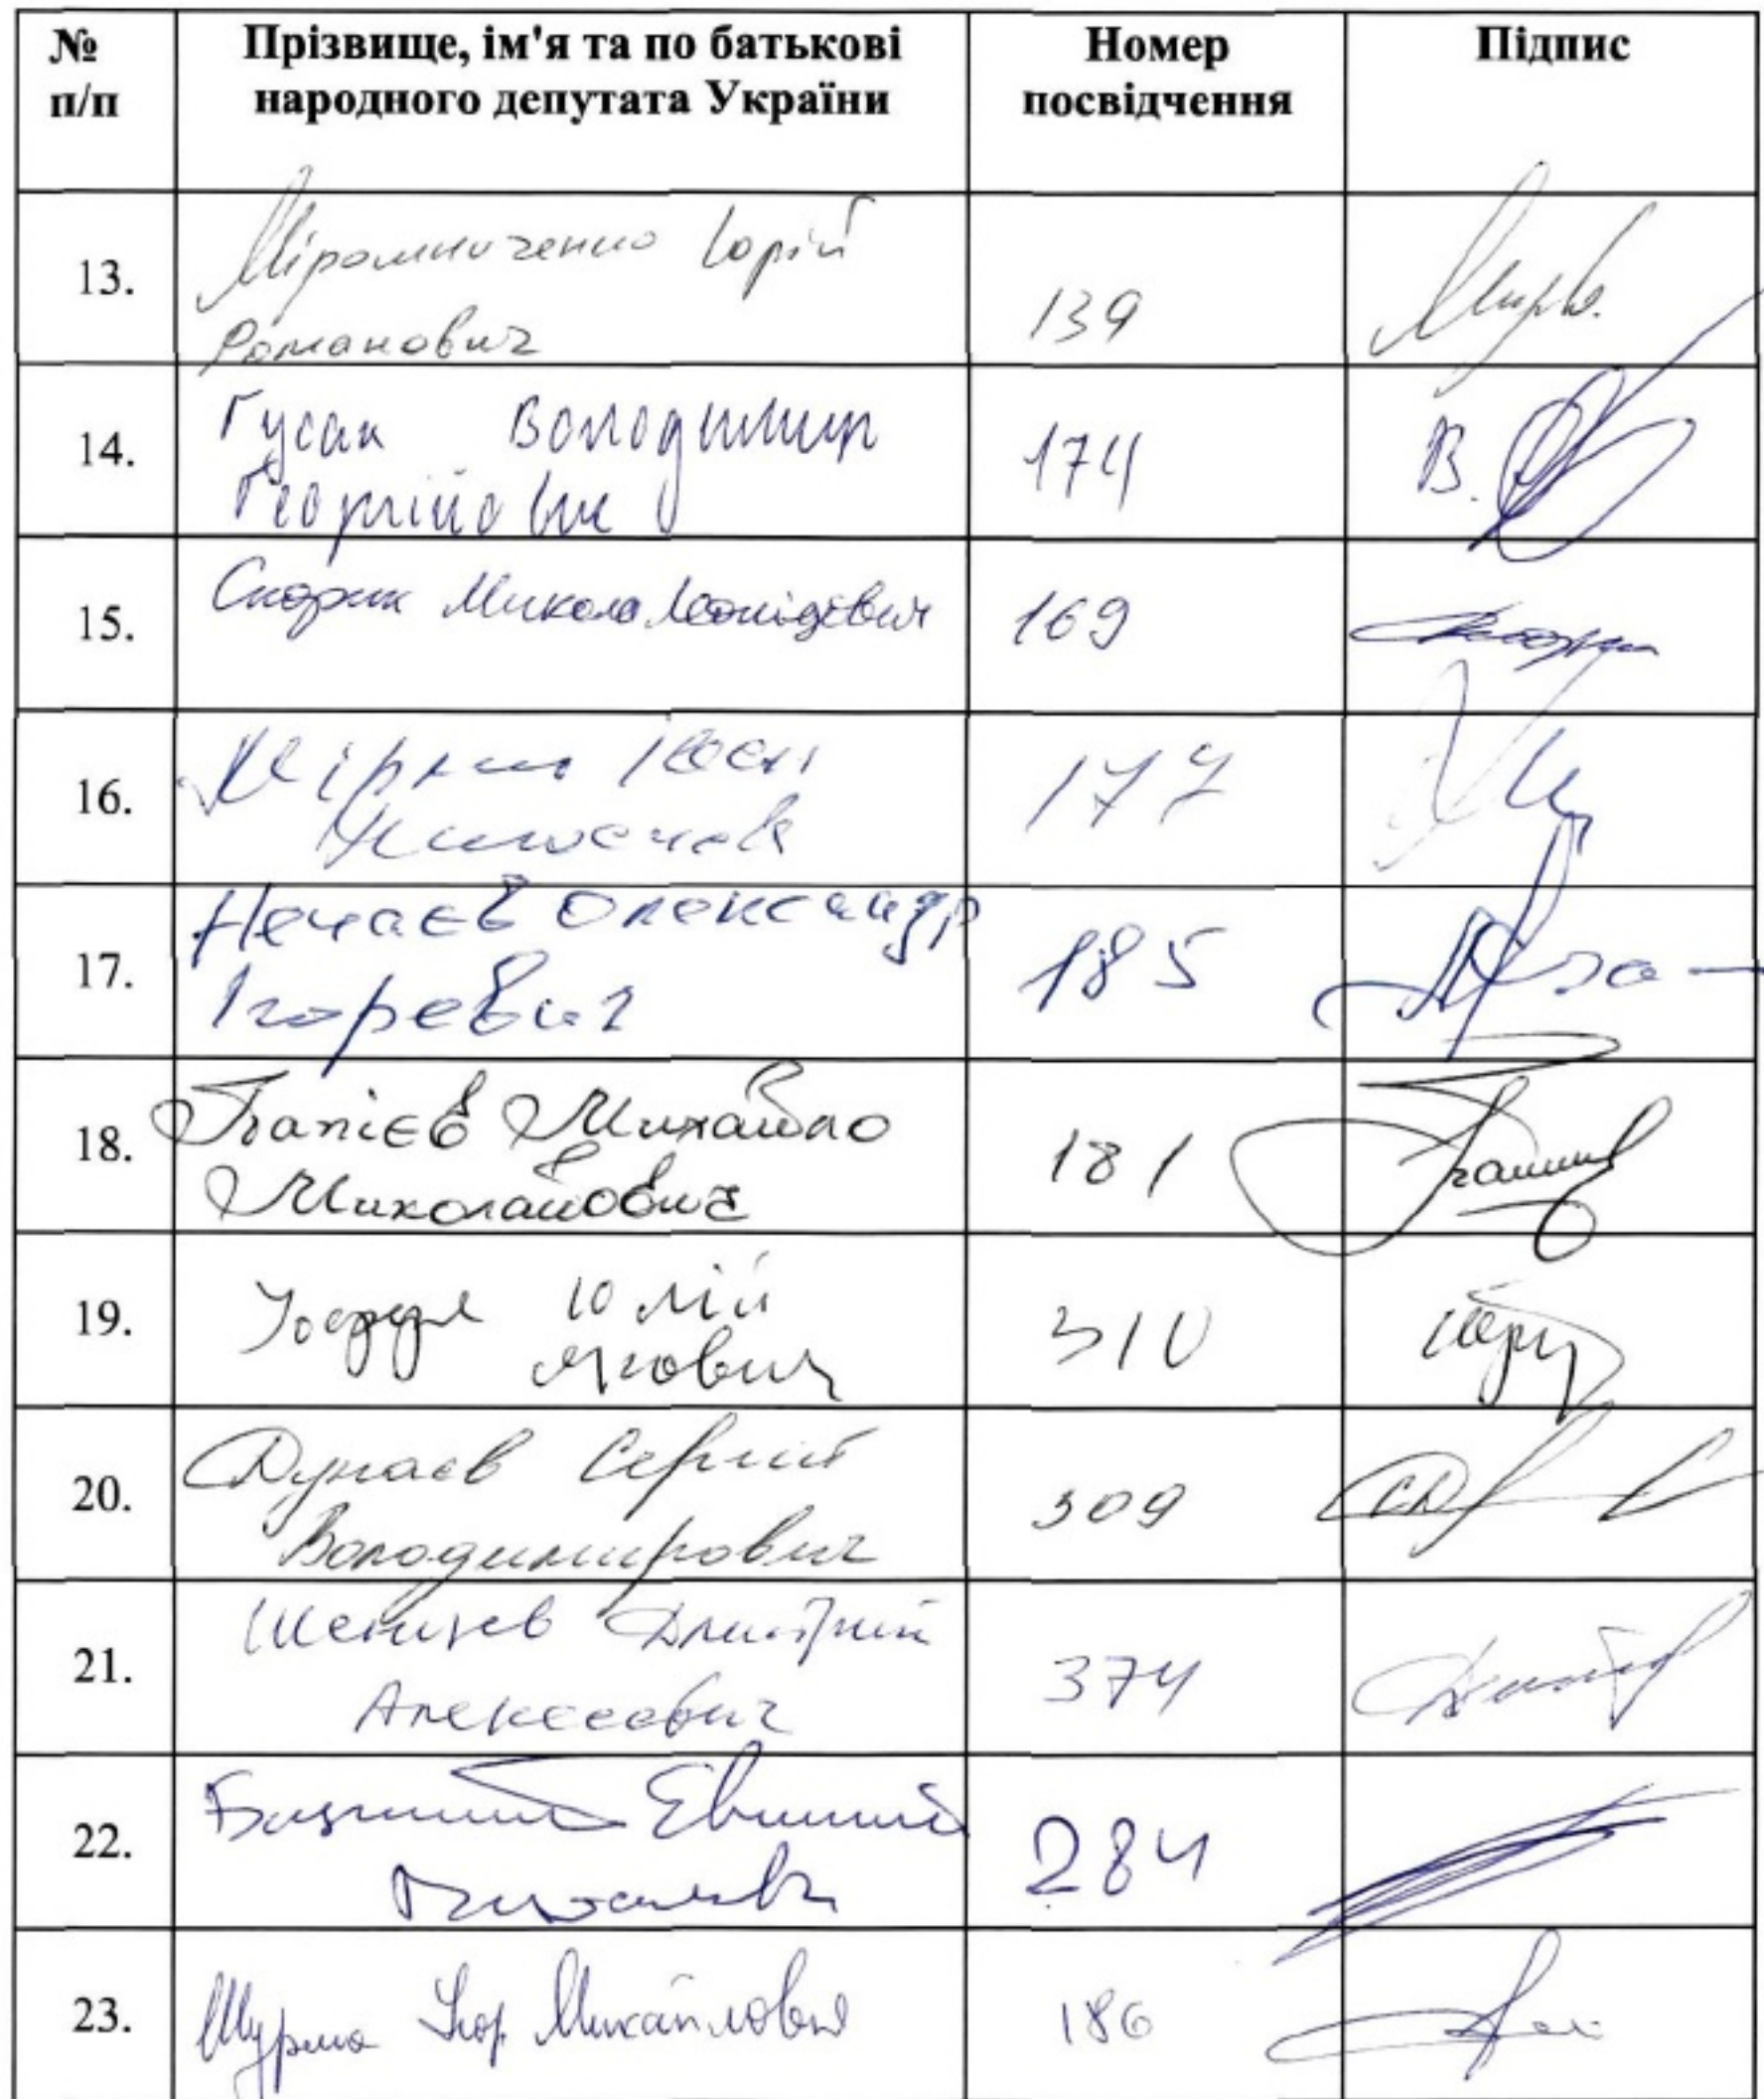 № п/п Прізвище, ім'я та по батькові народного депутата України Номер посвідчення Підпис
13. Мірошниченко Юрій
Романович 139
14. Гусак Володимир
Георгійович 174
15. Скорик Микола Леонідович 169
16. Мірний Іван
177
17. Нечаєв Олександр
Ігоревич 185
18. Папієв Михайло
Миколайович 181
19. Іоффе Юлій
Якович 310
20. Дунаєв Сергій
Володимирович 309
21. Шенцев Дмитрий
Алексеевич 374
22. 284
23. Шурма Ігор Михайлович 186